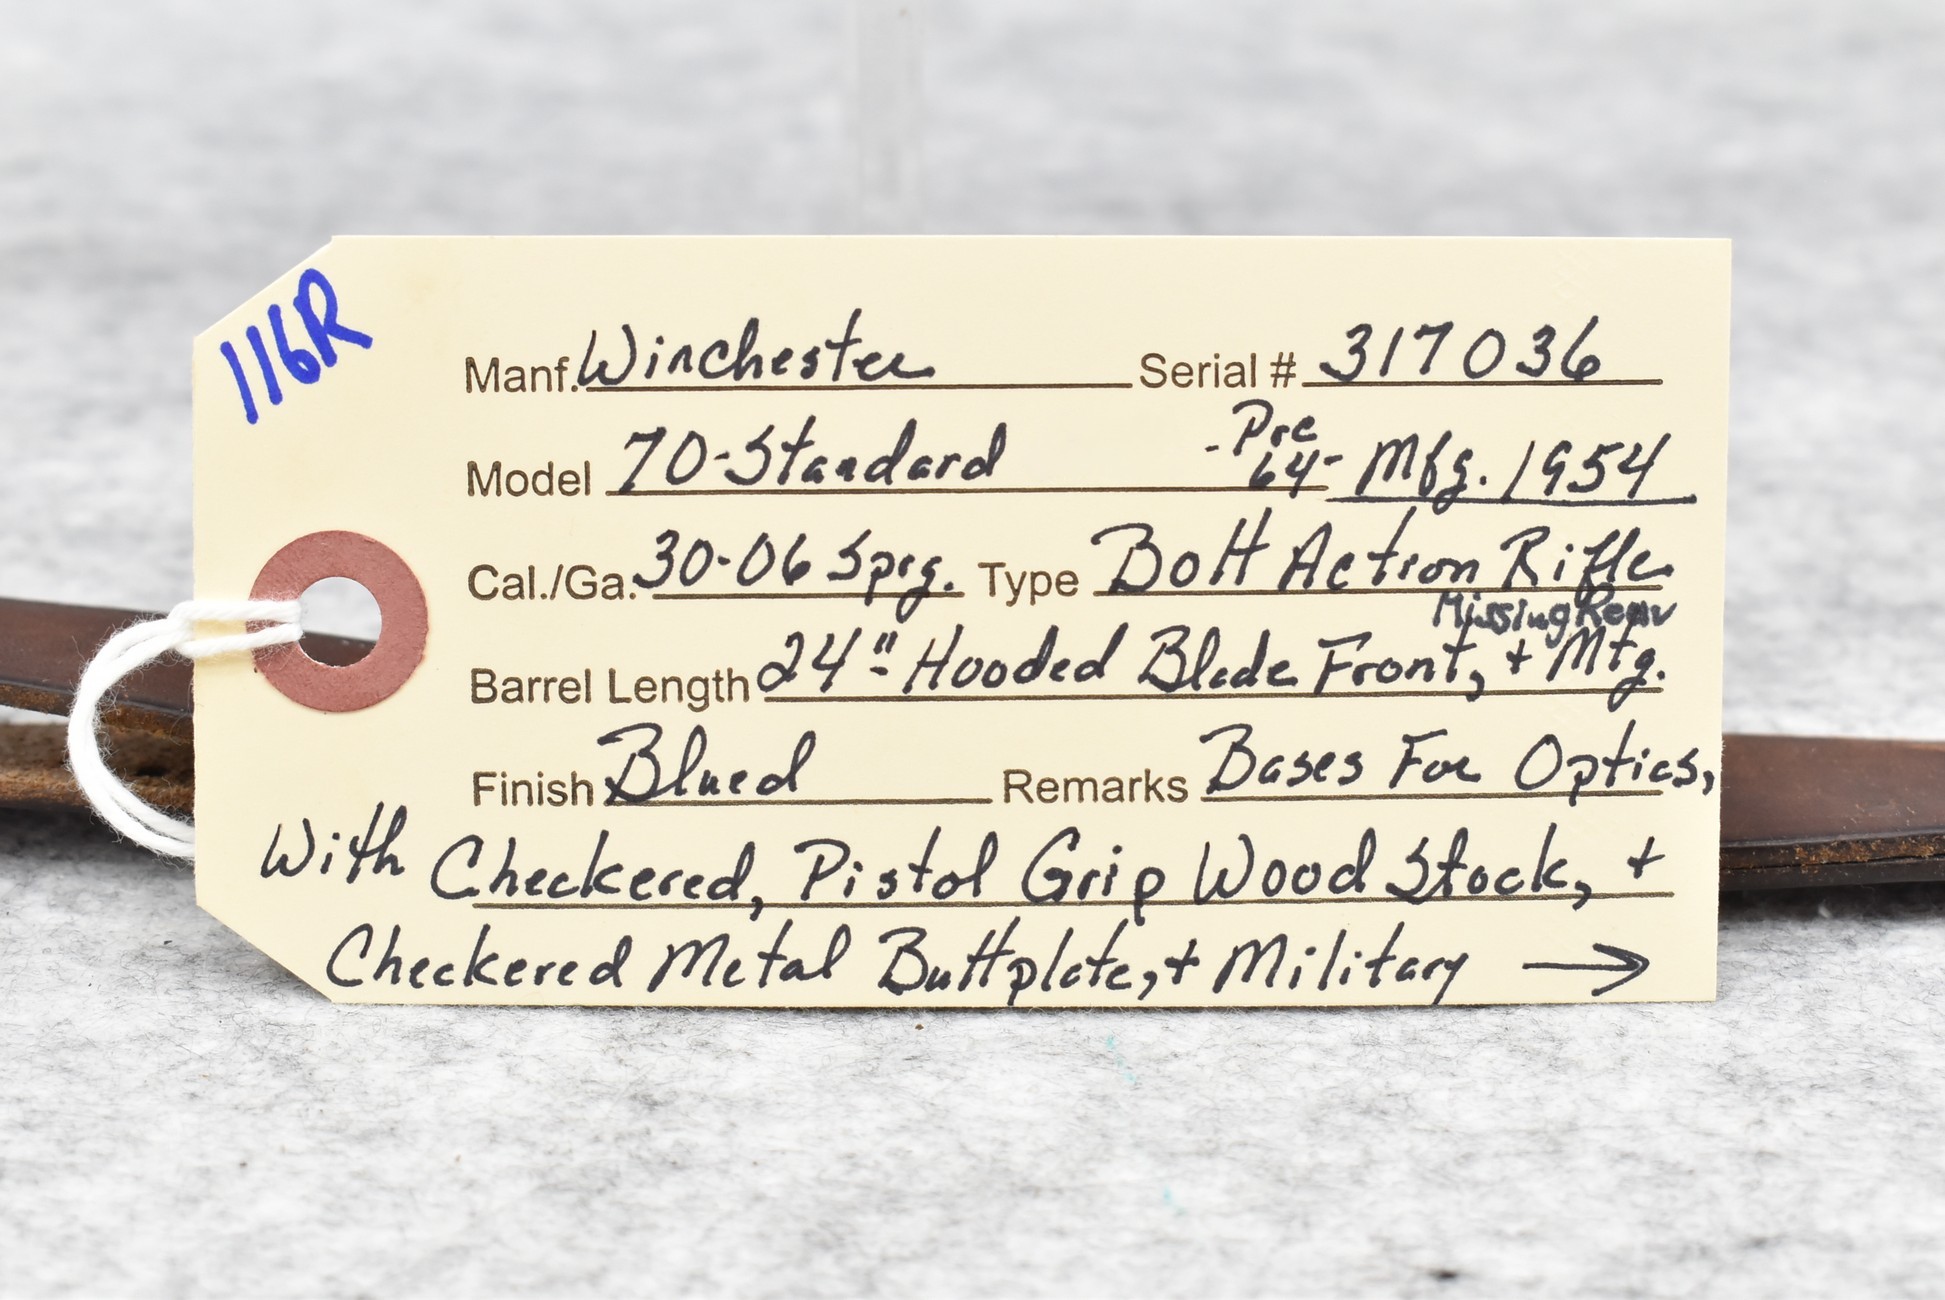 116R
Manf. Winchester Serial # 317036
Model 70-Standard -Pre 64- Mfg. 1954
Cal./Ga. 30-06 Sprg. Type Bolt Action Rifle
Missing Rear
Barrel Length 24" Hooded Blade Front, + Mtg.
Finish Blued Remarks Bases For Optics,
With Checkered, Pistol Grip Wood Stock, +
Checkered Metal Buttplate, + Military →